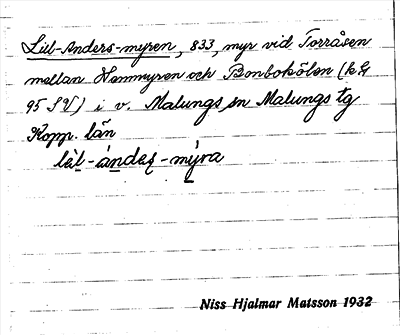 Lill-Anders-myren, 833, myr vid Torråsen
mellan Hemmyren och Bonbokölen (k G
95 SV) i v. Malungs sn Malungs tg
Kopp. län
lìl-ándeʂ-mýra
Niss Hjalmar Matsson 1932